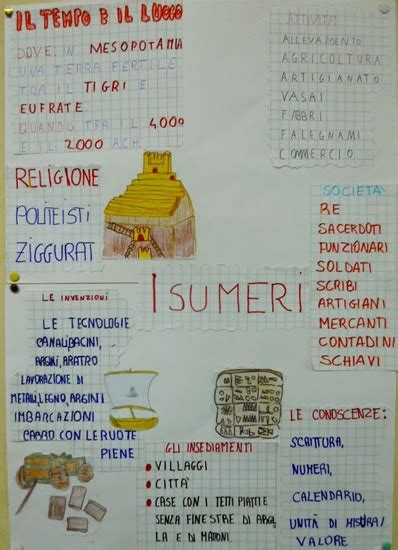 IL TEMPO E IL LUOGO
DOVE: IN MESOPOTAMIA
UNA TERRA FERTILE
TRA IL TIGRI E
EUFRATE
QUANDO: TRA IL 4000
E IL 2000 A.C.
ATTIVITÀ
ALLEVAMENTO
AGRICOLTURA
ARTIGIANATO
VASAI
FABBRI
FALEGNAMI
COMMERCIO
RELIGIONE
POLITEISTI
ZIGGURAT
SOCIETÀ
RE
SACERDOTI
FUNZIONARI
SOLDATI
SCRIBI
ARTIGIANI
MERCANTI
CONTADINI
SCHIAVI
I SUMERI
LE INVENZIONI
LE TECNOLOGIE
CANALI, BACINI,
ARGINI, ARATRO
LAVORAZIONE DI
METALLI, LEGNO, ARGINI
IMBARCAZIONI
CARRO CON LE RUOTE
PIENE
GLI INSEDIAMENTI
VILLAGGI
CITTÀ
CASE CON I TETTI PIATTI E
SENZA FINESTRE DI ARGIL
LA E DI MATTONI.
LE CONOSCENZE:
SCRITTURA,
NUMERI,
CALENDARIO,
UNITÀ DI MISURA/
VALORE